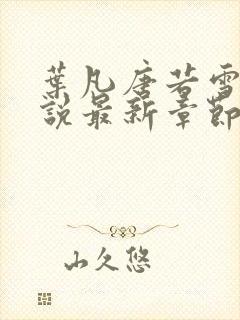 葉凡唐若雪
說最新章節
山久悠